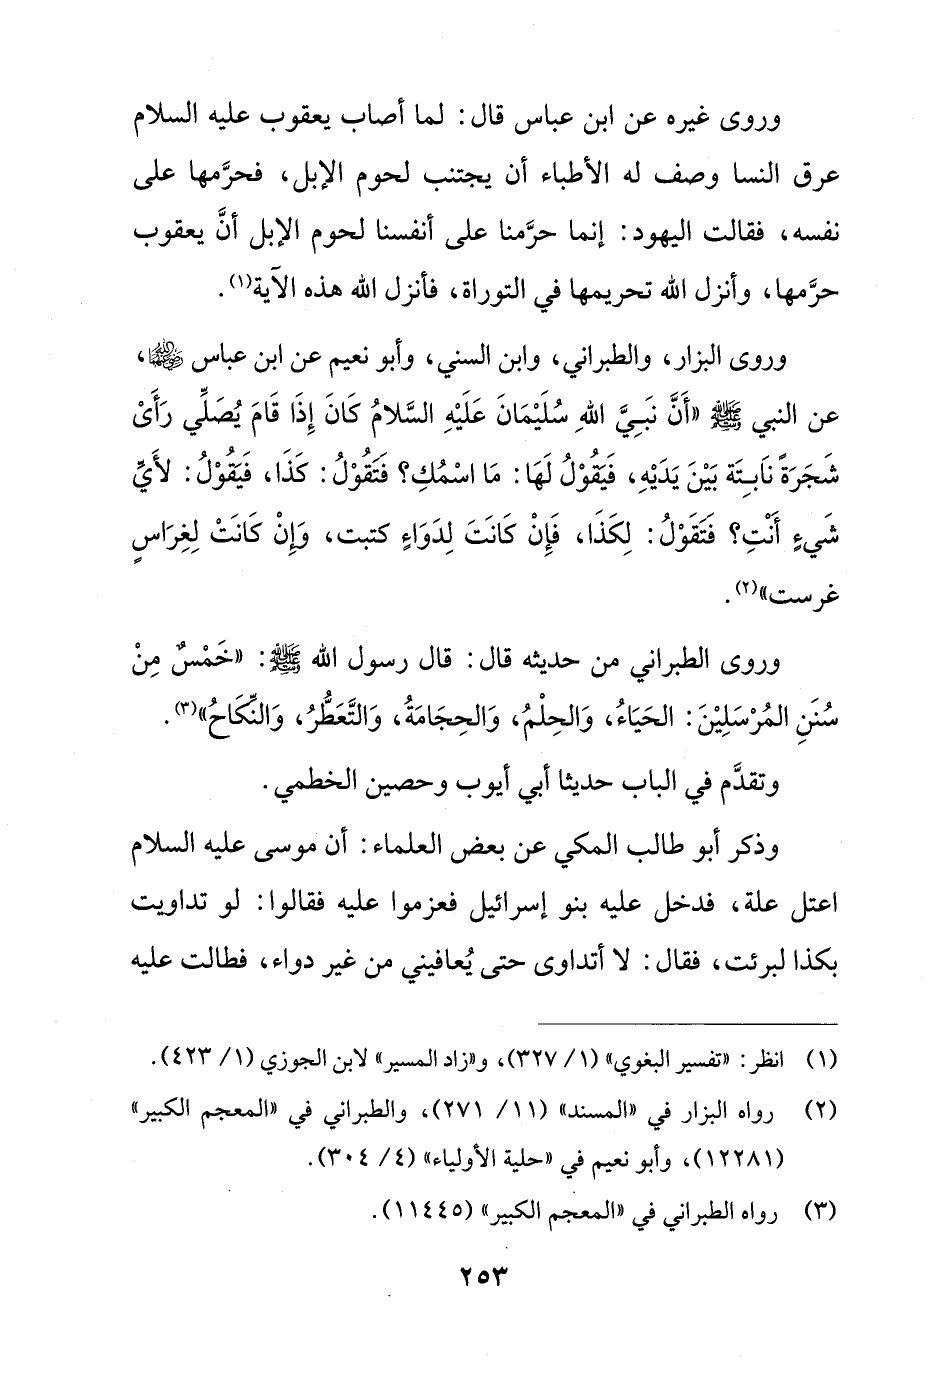 وروى غيره عن ابن عباس قال: لما أصاب يعقوب عليه السلام
عرق النسا وصف له الأطباء أن يجتنب لحوم الإبل، فحرَّمها على
نفسه، فقالت اليهود: إنما حرَّمنا على أنفسنا لحوم الإبل أنَّ يعقوب
حرَّمها، وأنزل الله تحريمها في التوراة، فأنزل الله هذه الآية(١).
وروى البزار، والطبراني، وابن السني، وأبو نعيم عن ابن عباس رضي الله عنهما،
عن النبي ﷺ «أَنَّ نَبِيَّ اللهِ سُلَيْمَانَ عَلَيْهِ السَّلامُ كَانَ إِذَا قَامَ يُصَلِّي رَأَىْ
شَجَرَةً نَابِتَة بَيْنَ يَدَيْهِ، فَيَقُوْلُ لَهَا: مَا اسْمُكِ؟ فَتَقُوْلُ: كَذَا، فَيَقُوْلُ: لأَيِّ
شَيءٍ أَنْتِ؟ فَتَقَوْلُ: لِكَذَا، فَإِنْ كَانَتَ لِدَوَاءٍ كتبت، وَإِنْ كَانَتْ لِغِرَاسٍ
غرست»(٢).
وروى الطبراني من حديثه قال: قال رسول الله ﷺ: «خَمْسٌ مِنْ
سُنَنِ المُرْسَلِيْنَ: الحَيَاءُ، وَالحِلْمُ، وَالحِجَامَةُ، وَالتَّعَطُّرُ، وَالنِّكَاحُ»(٣).
وتقدَّم في الباب حديثا أبي أيوب وحصين الخطمي.
وذكر أبو طالب المكي عن بعض العلماء: أن موسى عليه السلام
اعتل علة، فدخل عليه بنو إسرائيل فعزموا عليه فقالوا: لو تداويت
بكذا لبرئت، فقال: لا أتداوى حتى يُعافيني من غير دواء، فطالت عليه
(١) انظر: «تفسير البغوي» (١/ ٣٢٧)، و«زاد المسير» لابن الجوزي (١/ ٤٢٣).
(٢) رواه البزار في «المسند» (١١/ ٢٧١)، والطبراني في «المعجم الكبير»
(١٢٢٨١)، وأبو نعيم في «حلية الأولياء» (٤/ ٣٠٤).
(٣) رواه الطبراني في «المعجم الكبير» (١١٤٤٥).
٢٥٣